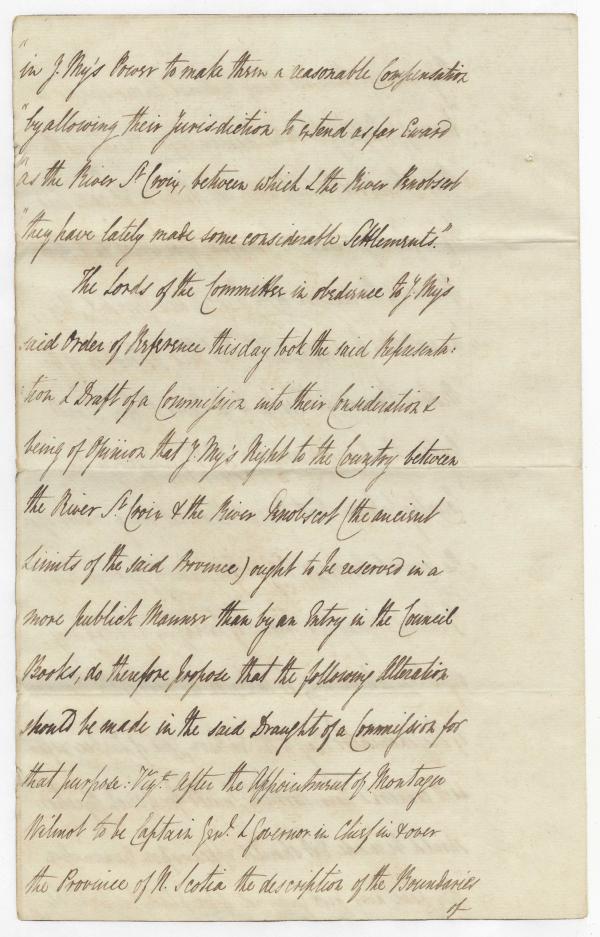 "in Y. My's Power to make them a reasonable Compensation
"by allowing their Jurisdiction to extend as far Eward
"as the River St Croix, between which & the River Penobscot
"they have lately made some considerable Settlements."
The Lords of the Committee in obedience to Y. My's
said Order of Reference this day took the said Representa:
tion & Draft of a Commission into their Consideration &
being of Opinion that Y. My's Right to the Country between
the River St Croix & the River Penobscot (the ancient
Limits of the said Province) ought to be reserved in a
more publick Manner than by an Entry in the Council
Books, do therefore propose that the following Alteration
should be made in the said Draught of a Commission for
that purpose: Vizt. after the Appointment of Montagu
Wilmot to be Captain Genl. & Governor in Chief in & over
the Province of N. Scotia the description of the Boundaries
of